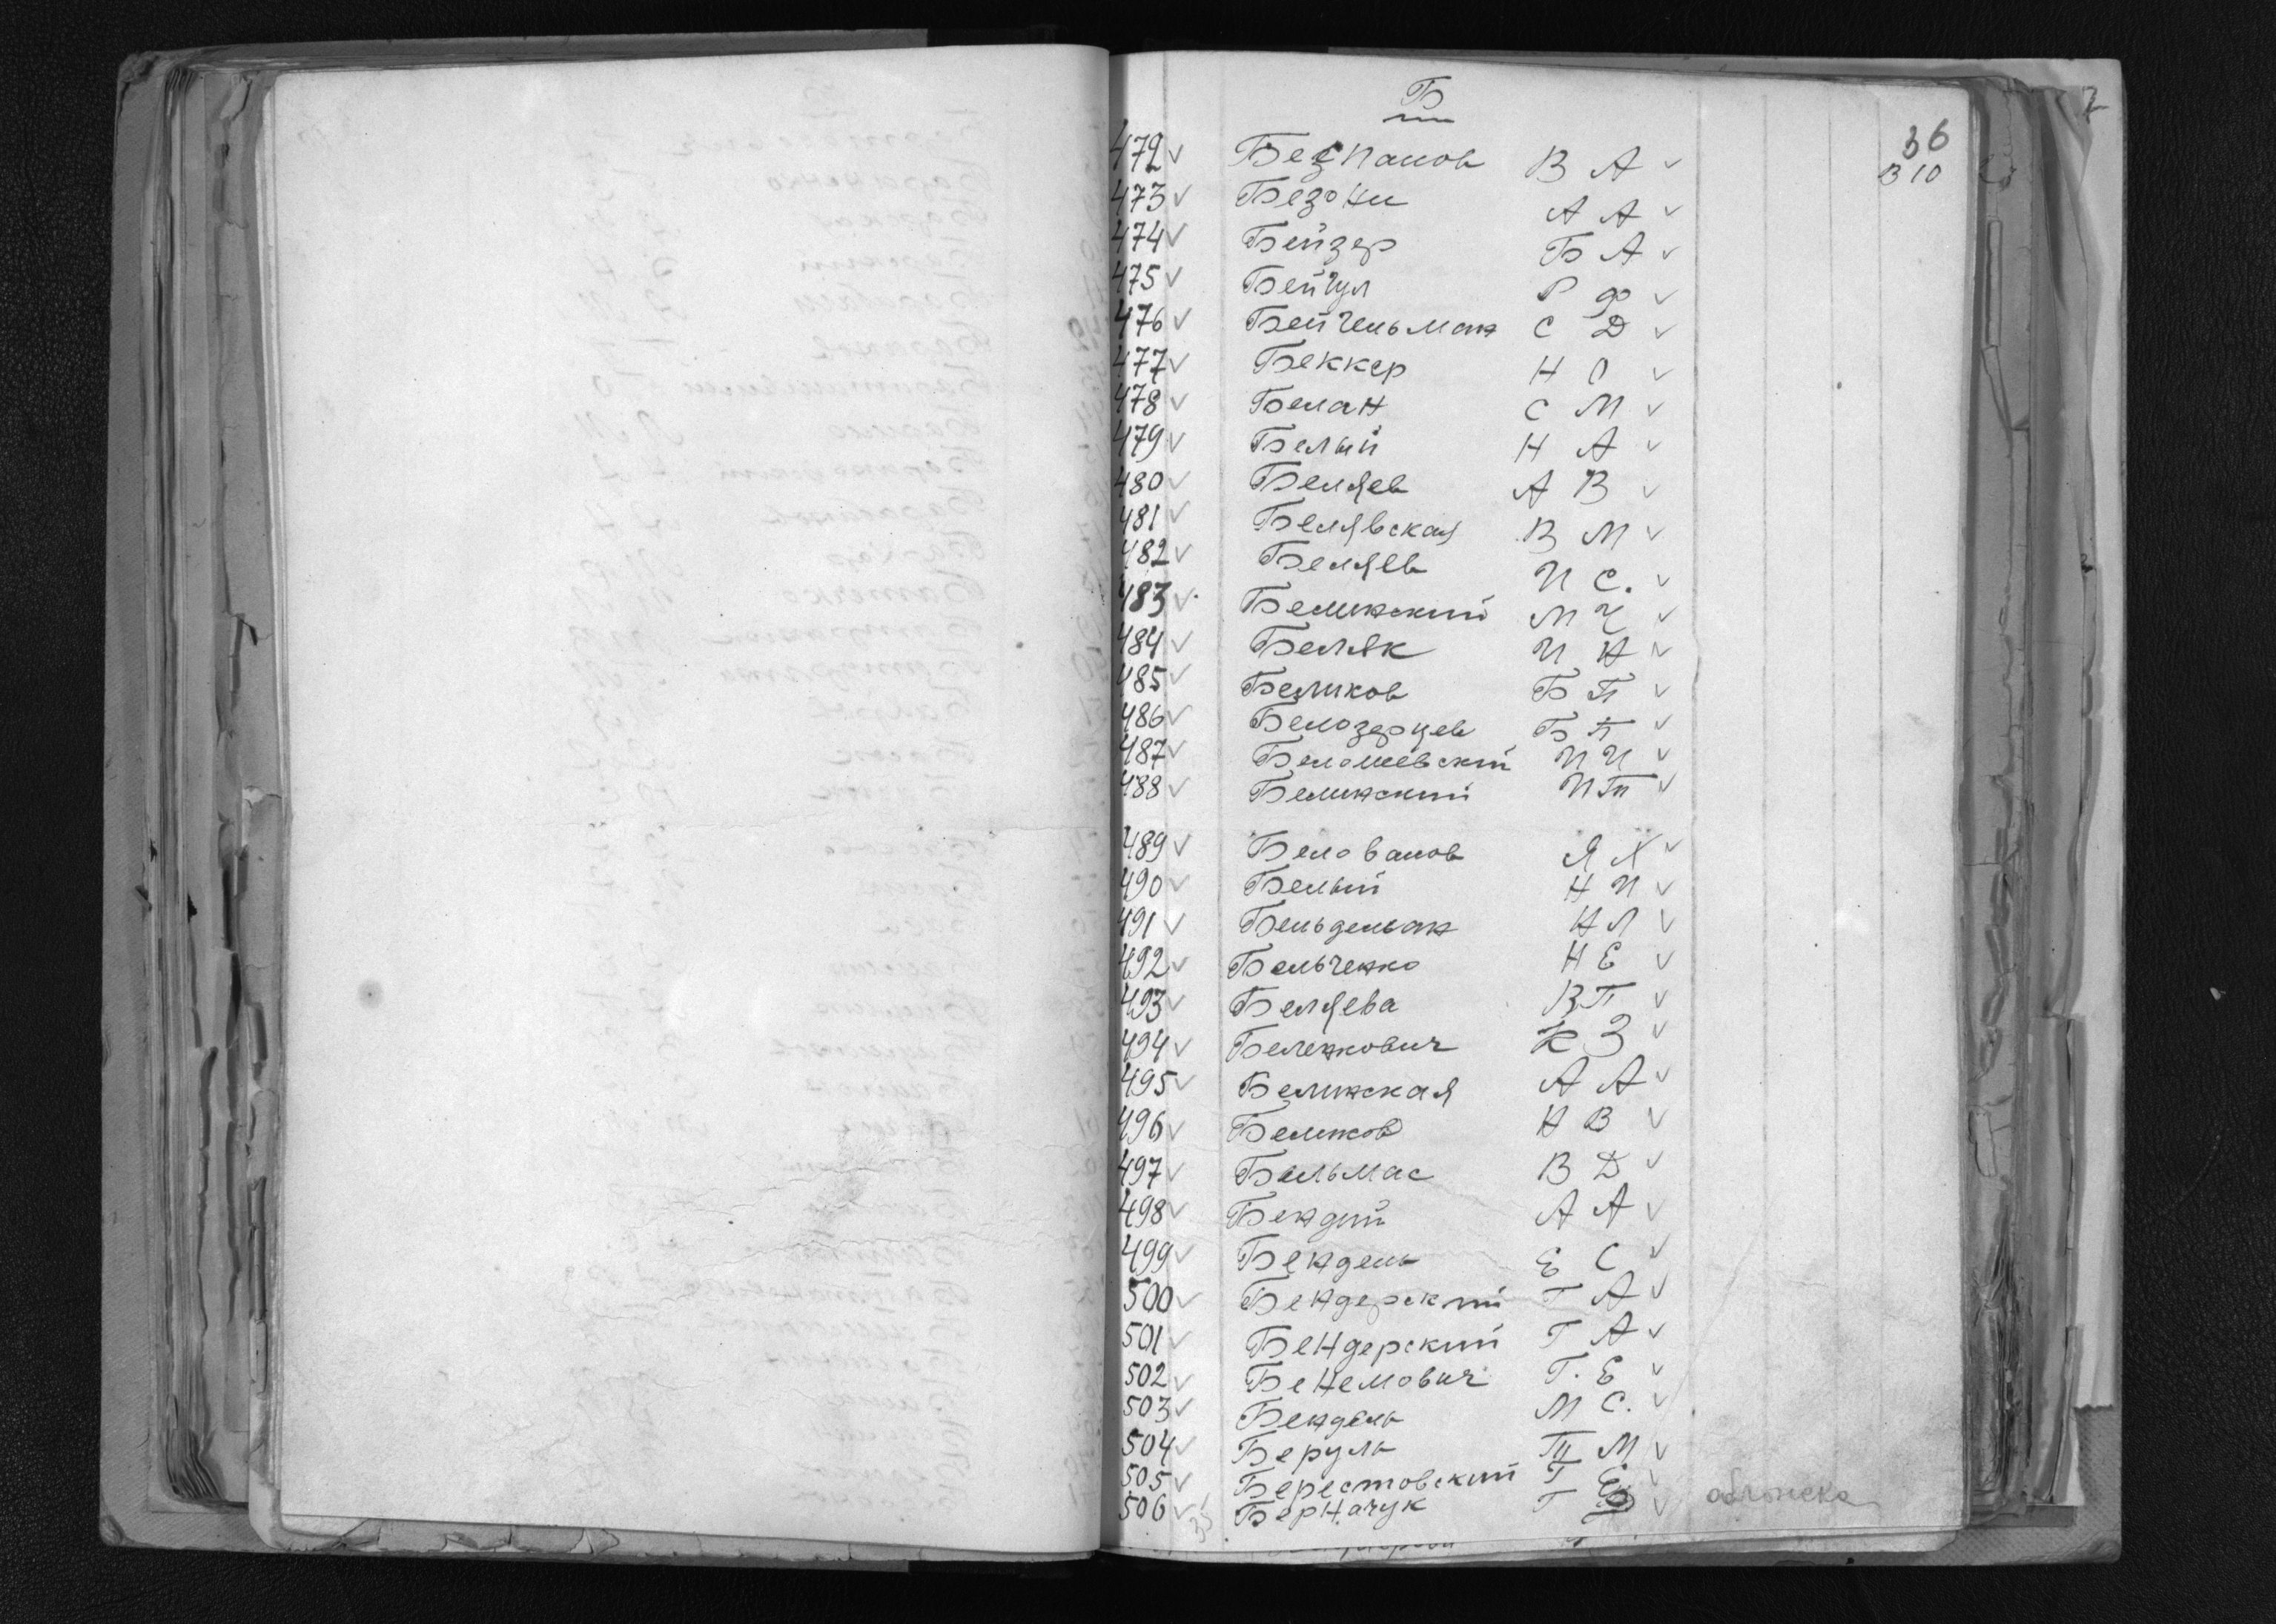 Б
36
В 10
472 ✓ Беспалов В А ✓
473 ✓ Безони А А ✓
474 ✓ Бейзер Б А ✓
475 ✓ Бейгул Р Ф ✓
476 ✓ Бейгельман С Д ✓
477 ✓ Беккер Н О ✓
478 ✓ Белан С М ✓
479 ✓ Белый Н А ✓
480 ✓ Беляев А В ✓
481 ✓ Белявская В М ✓
482 ✓ Беляев И С. ✓
483 ✓ Белинский М ✓
484 ✓ Беляк И Н ✓
485 ✓ Беликов Б П ✓
486 ✓ Белозерцев Б П ✓
487 ✓ Беломевский И И ✓
488 ✓ Белинский И П ✓
489 ✓ Беловалов Я Х ✓
490 ✓ Белый Н И ✓
491 ✓ Бельдельан Н Л ✓
492 ✓ Бельченко Н Е ✓
493 ✓ Беляева В П ✓
494 ✓ Беленкович К З ✓
495 ✓ Белинская А А ✓
496 ✓ Беликов Н В ✓
497 ✓ Бельмас В Д ✓
498 ✓ Бендий А А ✓
499 ✓ Бендель Е С ✓
500 ✓ Бендерский Г А ✓
501 ✓ Бендерский Г А ✓
502 ✓ Бенемович Г. Е ✓
503 ✓ Бендель М С. ✓
504 ✓ Беруль П М ✓
505 ✓ Берестовский Г Е ✓
506 ✓ Берначук Г ✓
35